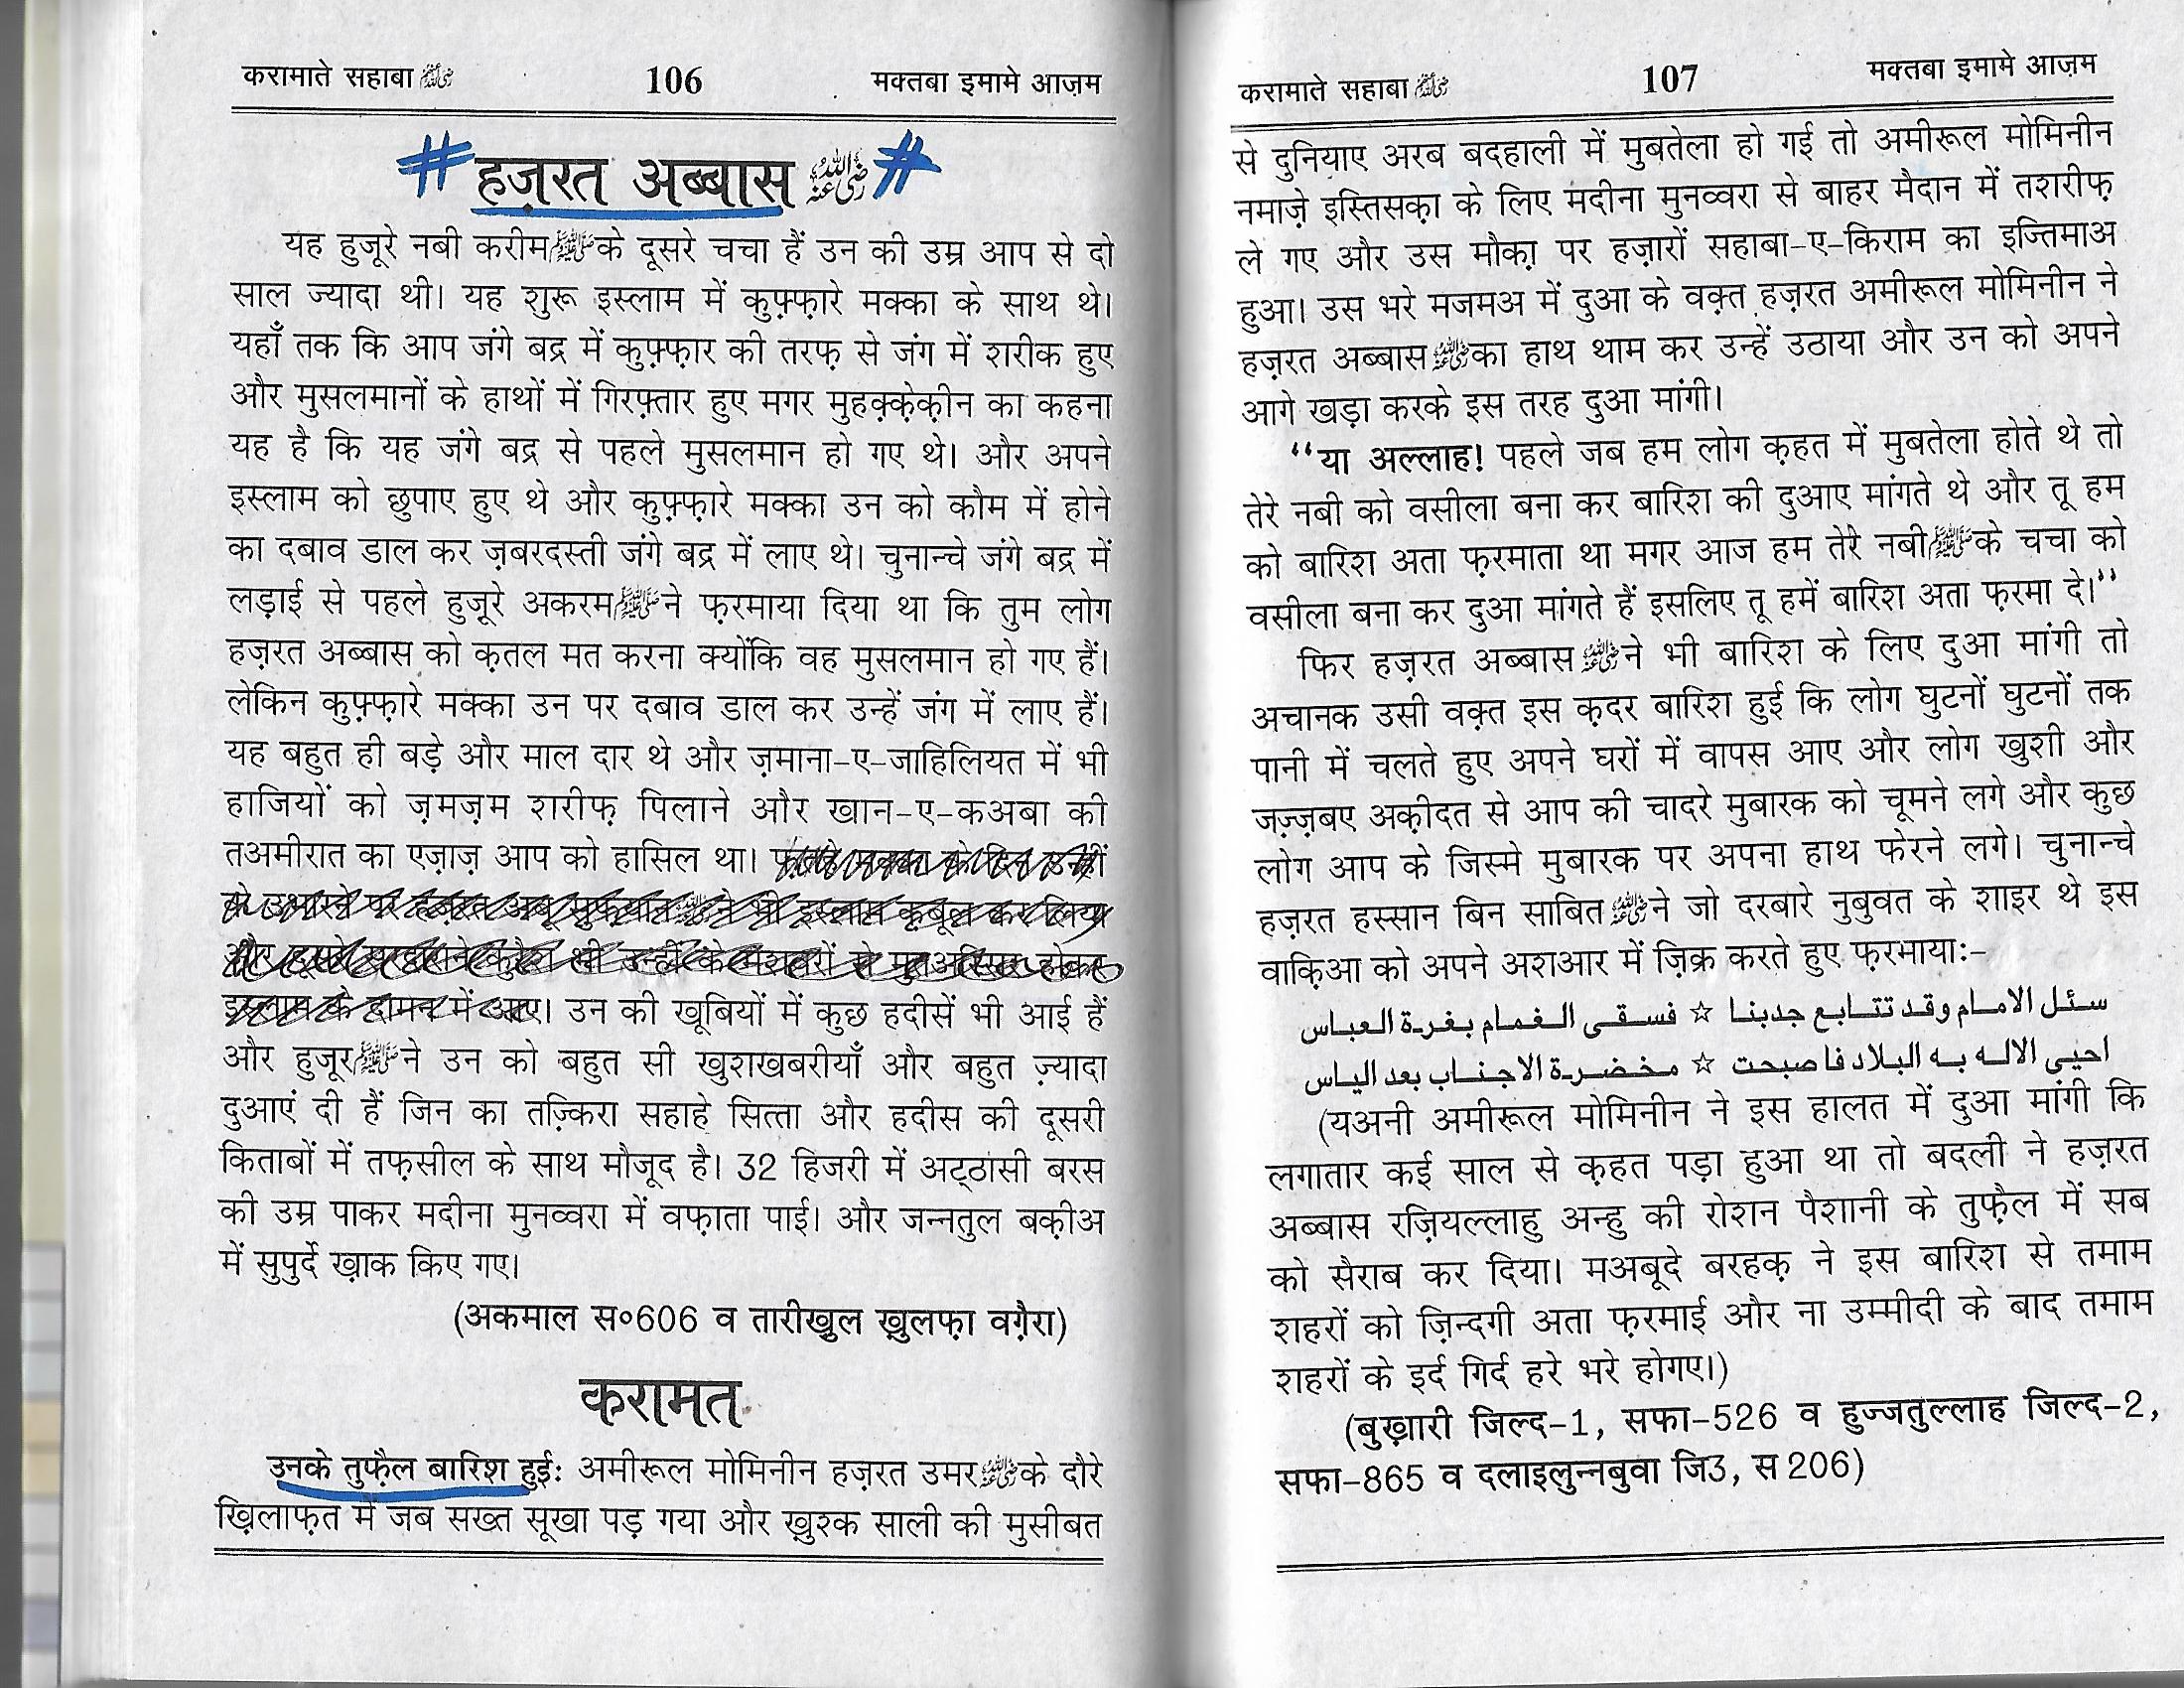 करामाते सहाबा ؓ 106 मक्तबा इमामे आज़म
# हज़रत अब्बास ؓ #
यह हुजूरे नबी करीमﷺके दूसरे चचा हैं उन की उम्र आप से दो
साल ज्यादा थी। यह शुरू इस्लाम में कुफ़्फ़ारे मक्का के साथ थे।
यहाँ तक कि आप जंगे बद्र में कुफ़्फ़ार की तरफ़ से जंग में शरीक हुए
और मुसलमानों के हाथों में गिरफ़्तार हुए मगर मुहक़्क़ेक़ीन का कहना
यह है कि यह जंगे बद्र से पहले मुसलमान हो गए थे। और अपने
इस्लाम को छुपाए हुए थे और कुफ़्फ़ारे मक्का उन को कौम में होने
का दबाव डाल कर ज़बरदस्ती जंगे बद्र में लाए थे। चुनान्चे जंगे बद्र में
लड़ाई से पहले हुजूरे अकरमﷺने फ़रमाया दिया था कि तुम लोग
हज़रत अब्बास को क़तल मत करना क्योंकि वह मुसलमान हो गए हैं।
लेकिन कुफ़्फ़ारे मक्का उन पर दबाव डाल कर उन्हें जंग में लाए हैं।
यह बहुत ही बड़े और माल दार थे और ज़माना-ए-जाहिलियत में भी
हाजियों को ज़मज़म शरीफ़ पिलाने और खान-ए-कअबा की
तअमीरात का एज़ाज़ आप को हासिल था।
इस्लाम के दामन में आए। उन की खूबियों में कुछ हदीसें भी आई हैं
और हुजूरﷺने उन को बहुत सी खुशखबरीयाँ और बहुत ज़्यादा
दुआएं दी हैं जिन का तज़्किरा सहाहे सित्ता और हदीस की दूसरी
किताबों में तफ़सील के साथ मौजूद है। 32 हिजरी में अट्ठासी बरस
की उम्र पाकर मदीना मुनव्वरा में वफ़ाता पाई। और जन्नतुल बक़ीअ
में सुपुर्दे ख़ाक किए गए।
(अकमाल स०606 व तारीखुल ख़ुलफ़ा वग़ैरा)
करामत
उनके तुफ़ैल बारिश हुई: अमीरूल मोमिनीन हज़रत उमर ؓ के दौरे
ख़िलाफ़त में जब सख्त सूखा पड़ गया और ख़ुश्क साली की मुसीबत
करामाते सहाबा ؓ 107 मक्तबा इमामे आज़म
से दुनियाए अरब बदहाली में मुबतेला हो गई तो अमीरूल मोमिनीन
नमाज़े इस्तिसक़ा के लिए मदीना मुनव्वरा से बाहर मैदान में तशरीफ़
ले गए और उस मौक़ा पर हज़ारों सहाबा-ए-किराम का इज्तिमाअ
हुआ। उस भरे मजमअ में दुआ के वक़्त हज़रत अमीरूल मोमिनीन ने
हज़रत अब्बास ؓ का हाथ थाम कर उन्हें उठाया और उन को अपने
आगे खड़ा करके इस तरह दुआ मांगी।
“या अल्लाह! पहले जब हम लोग क़हत में मुबतेला होते थे तो
तेरे नबी को वसीला बना कर बारिश की दुआए मांगते थे और तू हम
को बारिश अता फ़रमाता था मगर आज हम तेरे नबीﷺके चचा को
वसीला बना कर दुआ मांगते हैं इसलिए तू हमें बारिश अता फ़रमा दे।”
फिर हज़रत अब्बास ؓ ने भी बारिश के लिए दुआ मांगी तो
अचानक उसी वक़्त इस क़दर बारिश हुई कि लोग घुटनों घुटनों तक
पानी में चलते हुए अपने घरों में वापस आए और लोग खुशी और
जज़्ज़बए अक़ीदत से आप की चादरे मुबारक को चूमने लगे और कुछ
लोग आप के जिस्मे मुबारक पर अपना हाथ फेरने लगे। चुनान्चे
हज़रत हस्सान बिन साबित ؓ ने जो दरबारे नुबुवत के शाइर थे इस
वाक़िआ को अपने अशआर में ज़िक्र करते हुए फ़रमाया:-
سئل الامام وقد تتابع جدبنا ☆ فسقى الغمام بغرة العباس
احيى الاله به البلاد فاصبحت ☆ مخضرة الاجناب بعد الياس
(यअनी अमीरूल मोमिनीन ने इस हालत में दुआ मांगी कि
लगातार कई साल से क़हत पड़ा हुआ था तो बदली ने हज़रत
अब्बास रज़ियल्लाहु अन्हु की रोशन पैशानी के तुफ़ैल में सब
को सैराब कर दिया। मअबूदे बरहक़ ने इस बारिश से तमाम
शहरों को ज़िन्दगी अता फ़रमाई और ना उम्मीदी के बाद तमाम
शहरों के इर्द गिर्द हरे भरे होगए।)
(बुख़ारी जिल्द-1, सफा-526 व हुज्जतुल्लाह जिल्द-2,
सफा-865 व दलाइलुन्नबुवा जि3, स 206)